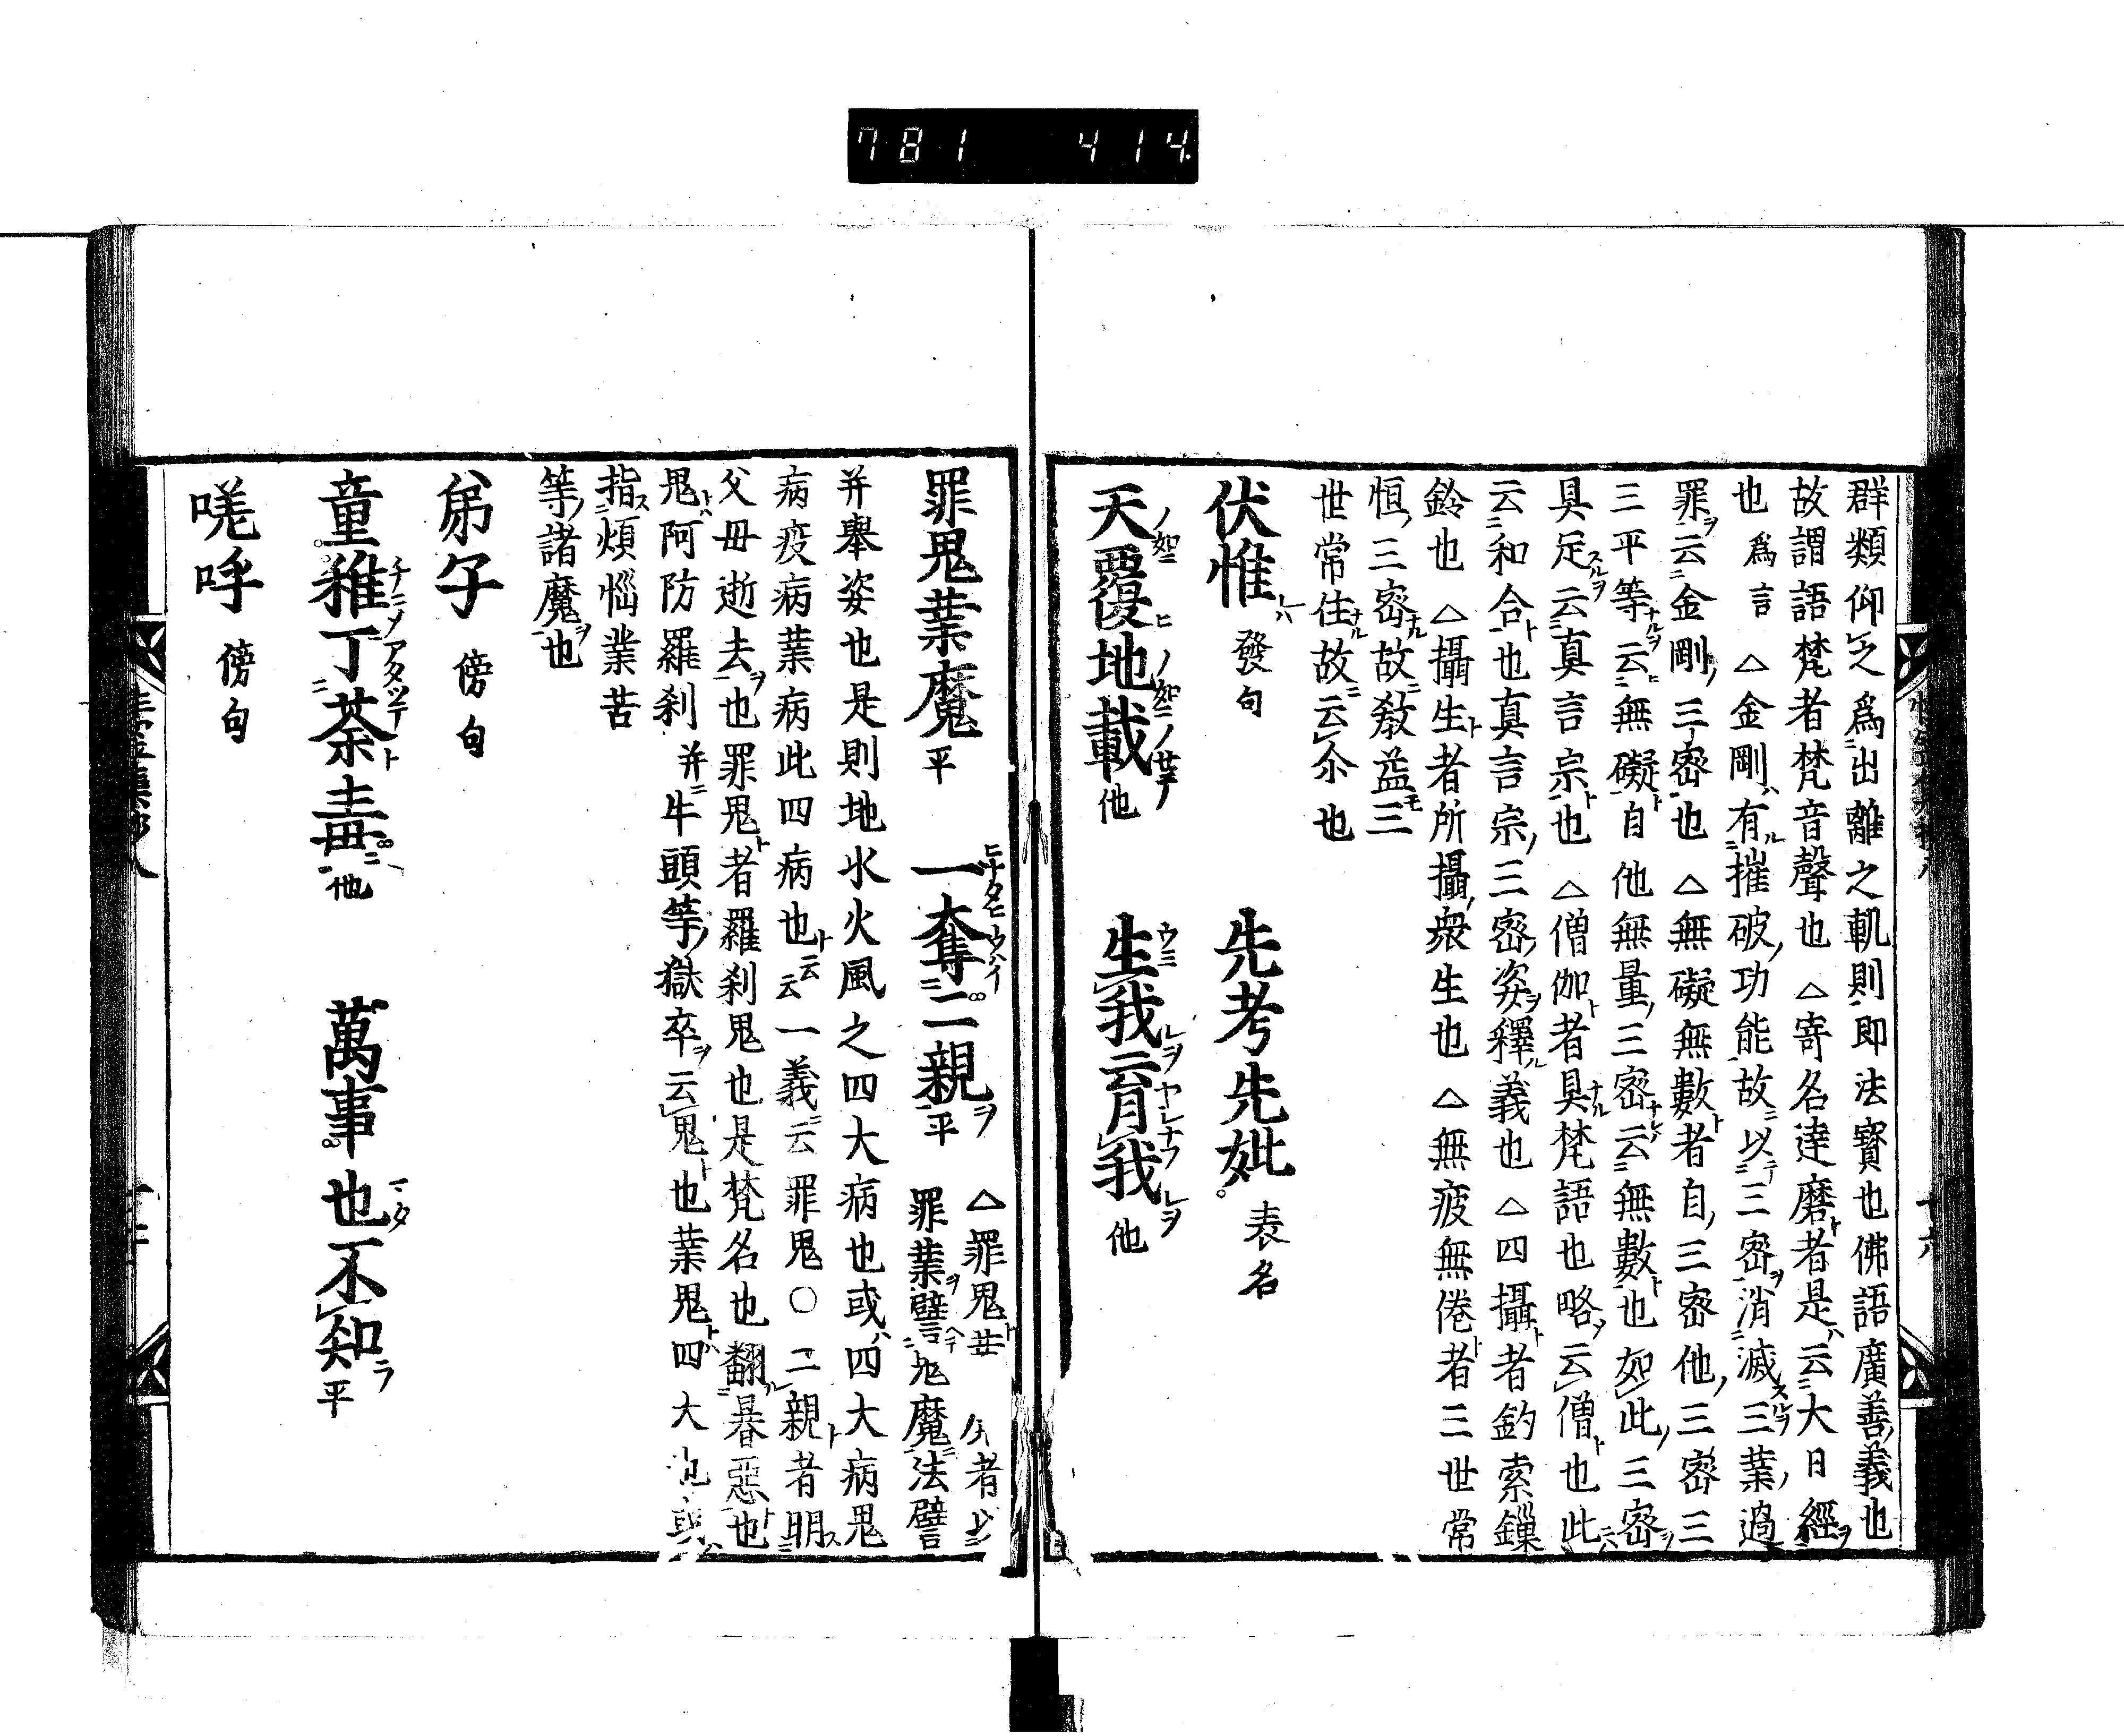 781 414.
群類仰之為出離之軌則即法寶也佛語廣善義也
故謂語梵者梵音聲也△寄名達磨者是云大日經
也為言△金剛有摧破功能故以三密消滅三業過
罪云金剛三密也△無礙無數者自三密他三密三
三平等云無礙自他無量三密云無數也如此三密
具足云真言宗也△僧伽者具梵語也略云僧也此
云和合也真言宗三密姿釋義也△四攝者鈞索鏁
鈴也△攝生者所攝衆生也△無疲無倦者三世常
恒三密故教益三
世常住故云尒也
伏惟 發句 先考先妣 表名
天覆地載 他 生我育我 他
罪鬼業魔 平 一奪二親 平 △罪鬼 者
罪業譬鬼魔法譬
并舉姿也是則地水火風之四大病也或四大病鬼
病疫病業病此四病也云云一義云罪鬼○二親者明
父母逝去也罪鬼者羅刹鬼也是梵名也翻暴惡也
鬼阿防羅刹并牛頭等獄卒云鬼也業鬼四大也
指煩惱業苦
等諸魔也
弟子 傍句
童稚丁荼毒 他 萬事也不知 平
嗟呼 傍句